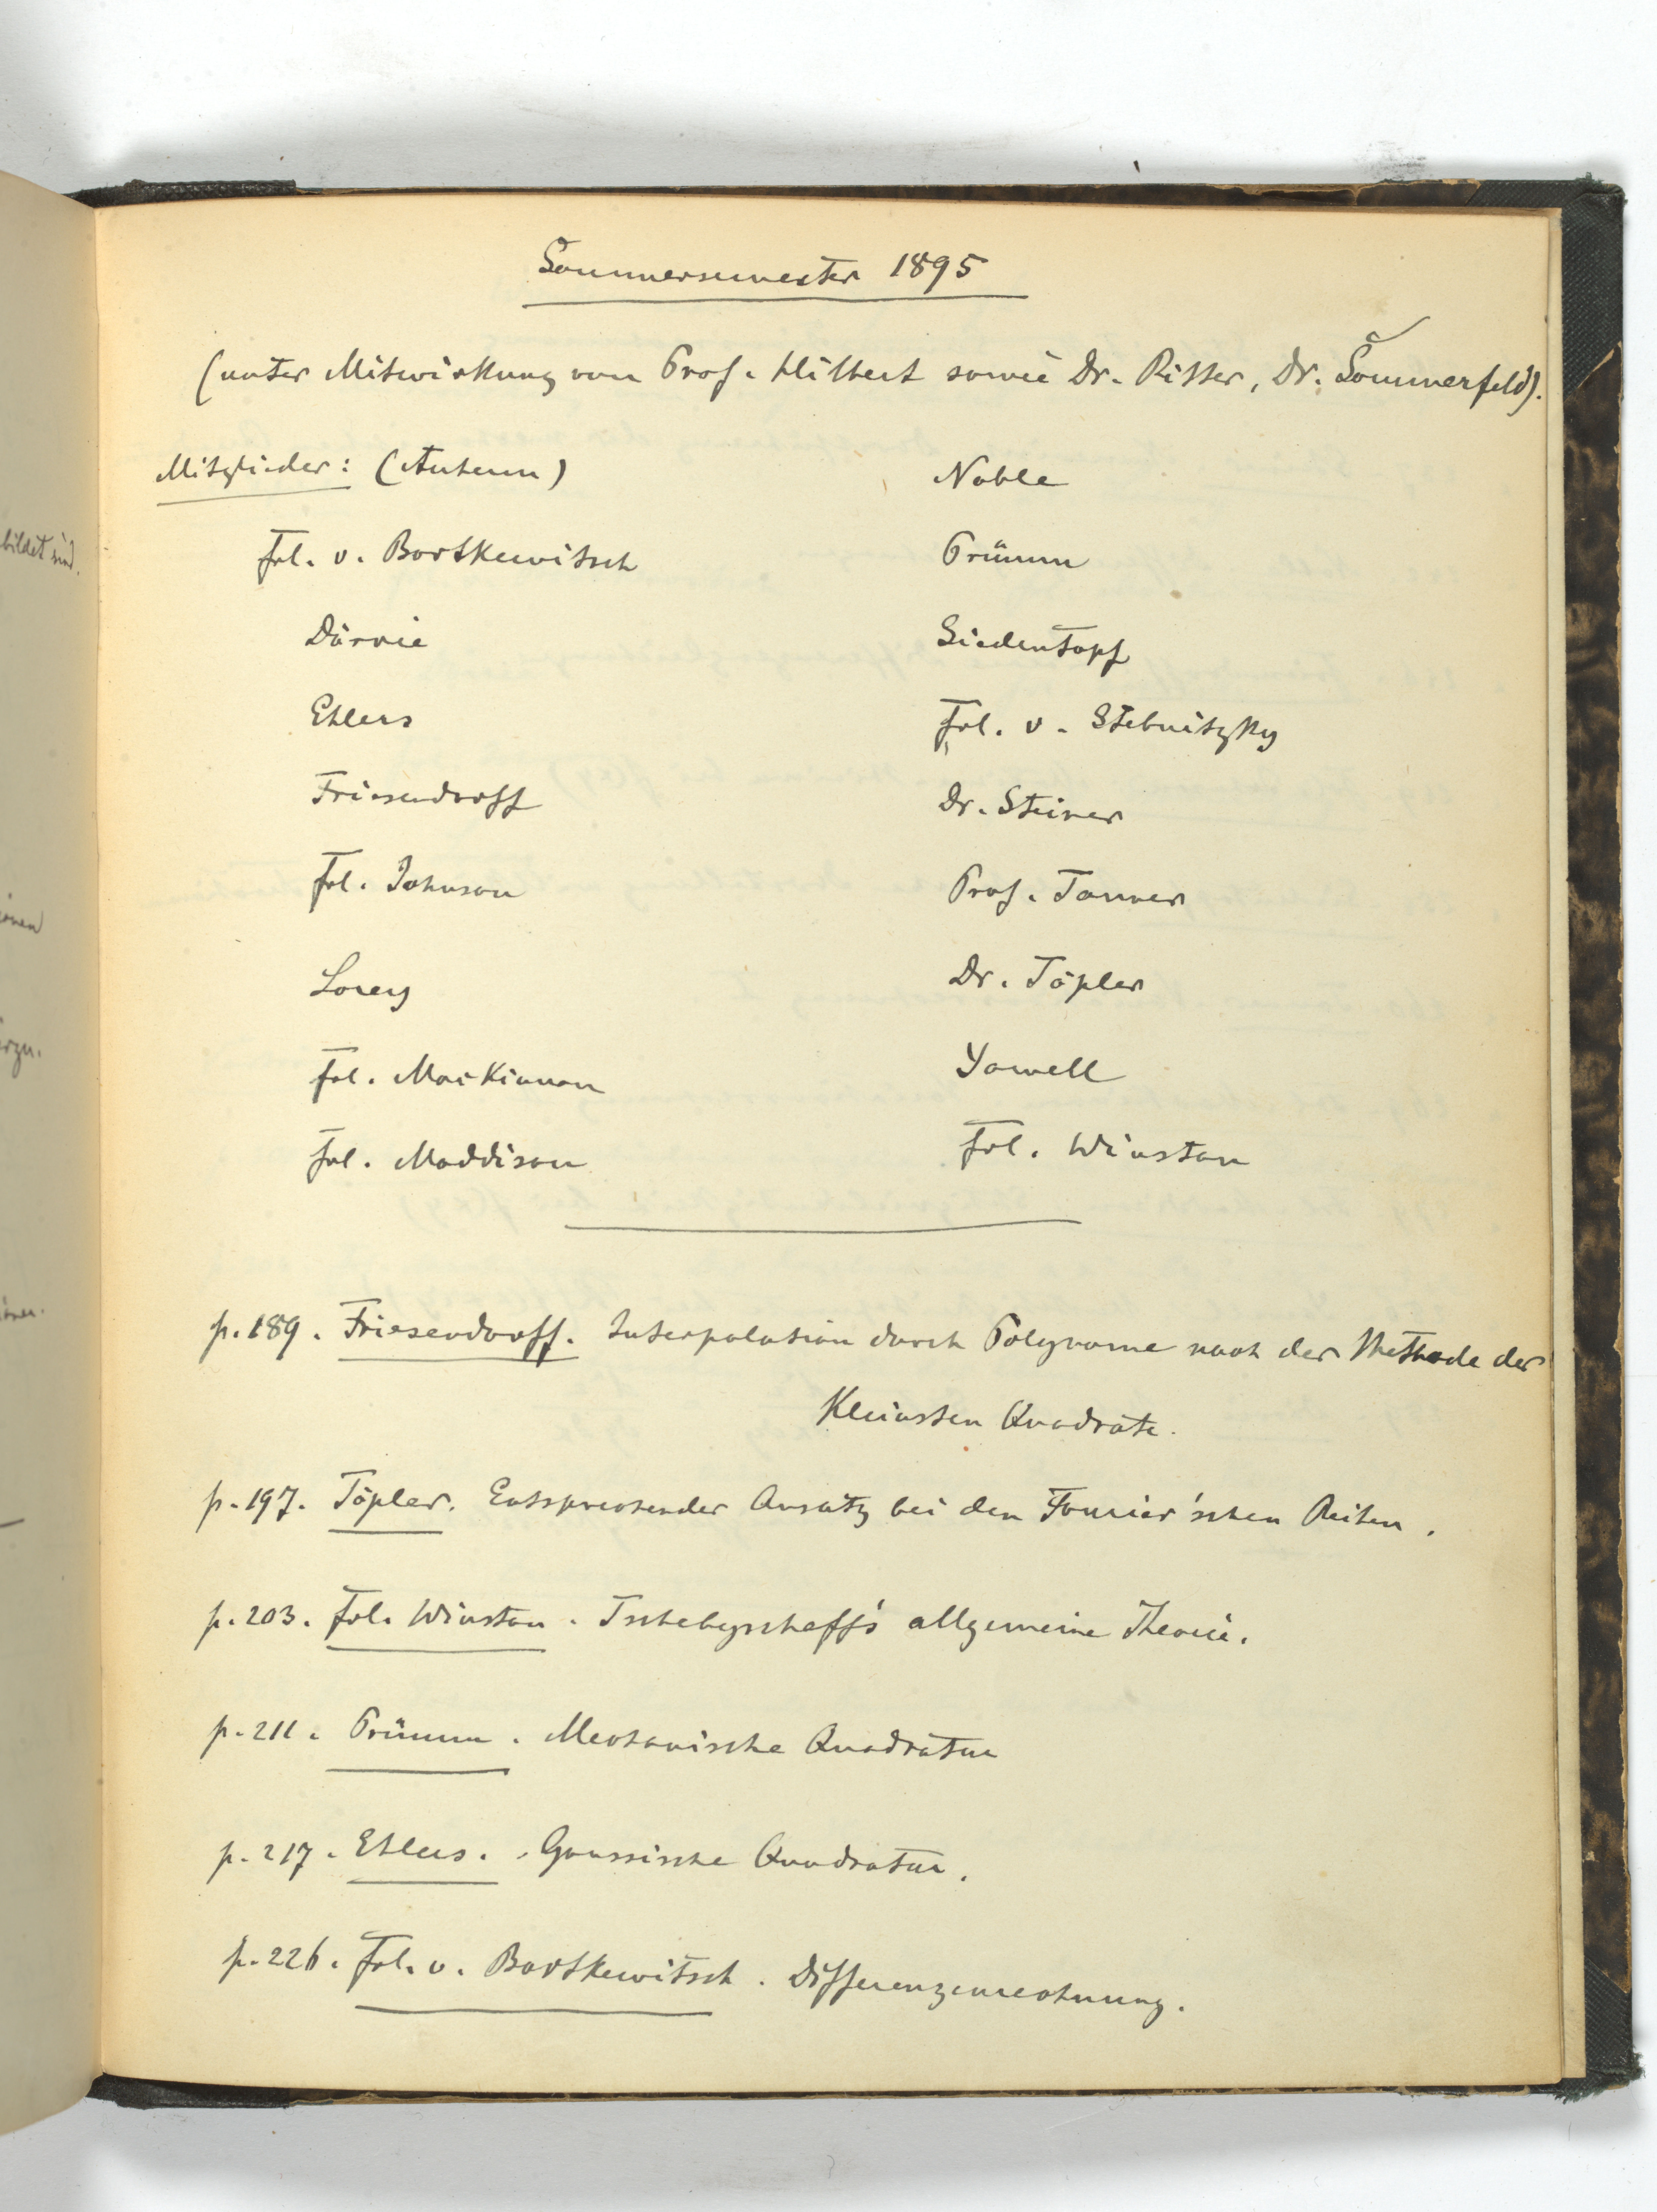 Sommersemester 1895
(unter Mitwirkung von Prof. Hilbert sowie Dr. Ritter, Dr. Sommerfeld).
Mitglieder: (Autenn)
Noble
Frl. v. Bortkewitsch
Prümm
Därrie
Siedentopf
Ehlers
Frl. v. Stebnitzky
Friesendorff
Dr. Steiner
Frl. Johnson
Prof. Tanner
Lorey
Dr. Töpler
Frl. MacKinnon
Yowell
Frl. Maddison
Frl. Winston
p. 189. Friesendorff. Interpolation durch Polynome nach der Methode der
Kleinsten Quadrate.
p. 197. Töpler. Entsprechender Ansatz bei den Fourier'schen Reihen.
p. 203. Frl. Winston. Tschebyscheff's allgemeine Theorie.
p. 211. Prümm. Mechanische Quadratur
p. 217. Ehlers. Gaussische Quadratur.
p. 226. Frl. v. Bortkewitsch. Differenzenrechnung.
bildet sind.